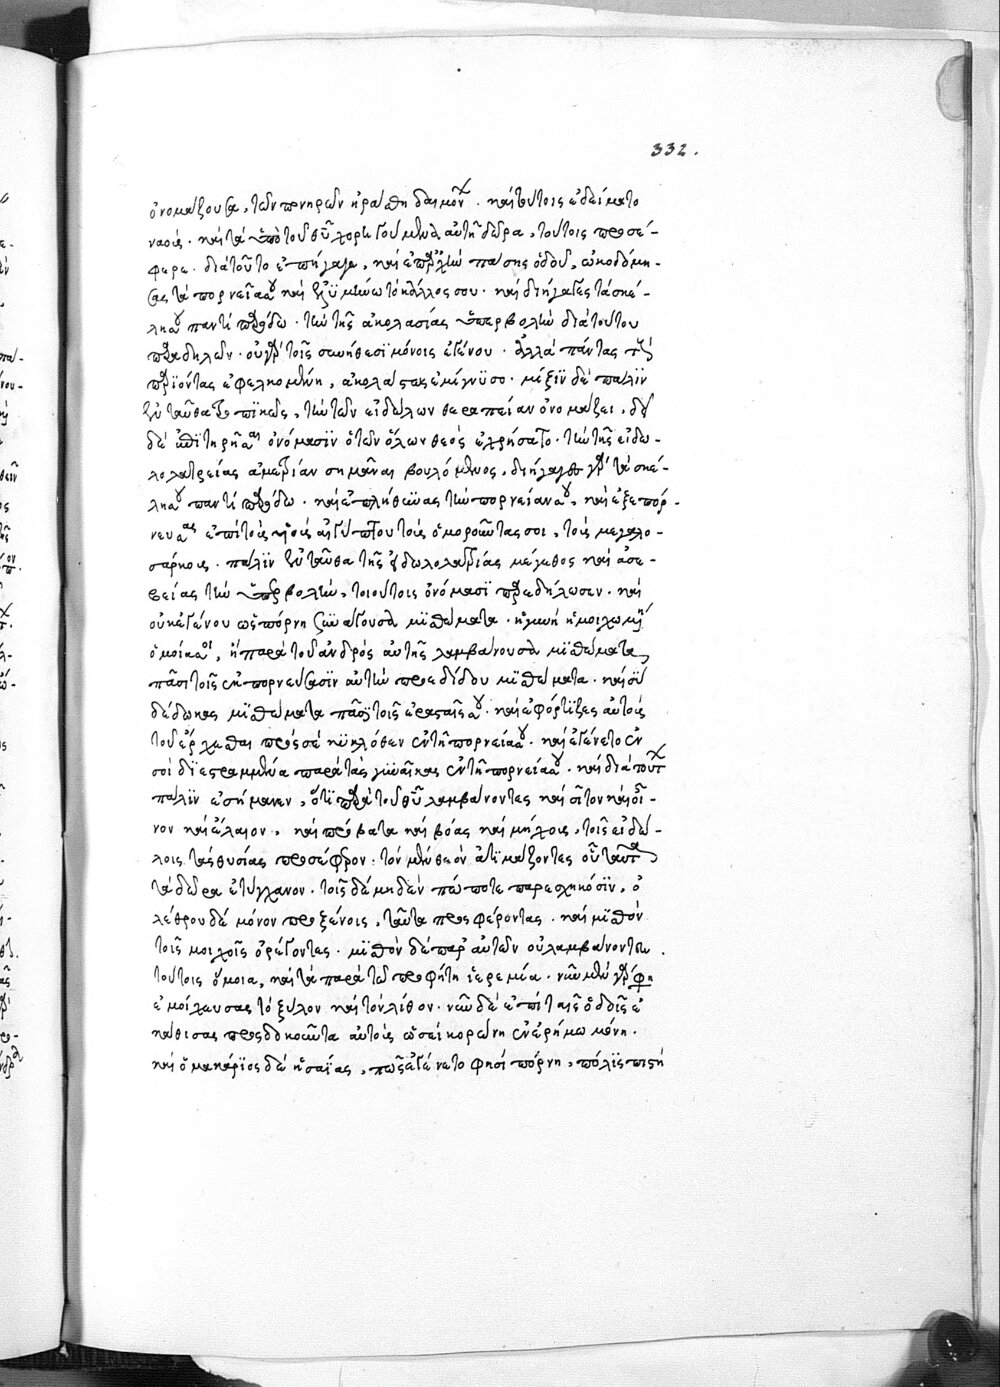 332.
ὀνομάζουσα, τῶν πονηρῶν ἠράσθη δαιμόνων. καὶ τούτοις ἐδείματο
ναούς. καὶ τὰ ὑπὸ τοῦ θεοῦ χορηγούμενα αὐτῇ δῶρα, τούτοις προσέ-
φερε. διὰ τοῦτο ἐπήγαγε, καὶ ἐπ' ἀρχὴν πάσης ὁδοῦ, ὠκοδόμη-
σας τὰ πορνεῖά σου καὶ ἐλυμήνω τὸ κάλλος σου. καὶ διήγαγες τὰ σκέ-
λη σου παντὶ παρόδω. τὴν τῆς ἀκολασίας ὑπερβολὴν διὰ τούτου
παραδηλῶν. οὐ γὰρ τοῖς συνήθεσι μόνοις ἐγένου. ἀλλὰ πάντας τοὺς
παριόντας ἐφελκομένη, ἀκολάστως ἐμίγνυσο. μίξιν δὲ πάλιν
ἐνταῦθα τροπικῶς, τὴν τῶν εἰδώλων θεραπείαν ὀνομάζει.
δὲ ὀνόμασιν ὁ τῶν ὅλων θεὸς ἐχρήσατο. τὴν τῆς εἰδω-
λολατρείας ἁμαρτίαν σημᾶναι βουλόμενος, διήγαγες γὰρ τὰ σκέ-
λη σου παντὶ παρόδω. καὶ ἐπλήθυνας τὴν πορνείαν σου, καὶ ἐξεπόρ-
νευσας ἐπὶ τοὺς υἱοὺς αἰγύπτου τοὺς ὁμοροῦντας σοι, τοὺς μεγαλο-
σάρκους. πάλιν ἐνταῦθα τῆς εἰδωλολατρίας μέγεθος καὶ ἀσε-
βείας τὴν ὑπερβολὴν, τοιούτοις ὀνόμασι παρεδήλωσεν. καὶ
οὐκ ἐγένου ὡς πόρνη συνάγουσα μισθώματα. ἡ γυνὴ ἡ μοιχωμένη
ὁμοία σοι, ἡ παρὰ τοῦ ἀνδρὸς αὐτῆς λαμβάνουσα μισθώματα,
πᾶσι τοῖς ἐκπορνεύσασιν αὐτὴν προεδίδου μισθώματα. καὶ σὺ
δέδωκας μισθώματα πᾶσι τοῖς ἐρασταῖς σου. καὶ ἐφόρτιζες αὐτοὺς
τοῦ ἔρχεσθαι πρὸς σὲ κυκλόθεν ἐν τῆ πορνεία σου. καὶ ἐγένετο ἐν
σοὶ διεστραμμένα παρὰ τὰς γυναῖκας ἐν τῆ πορνεία σου. καὶ διὰ τούτων
πάλιν ἐσήμανεν, ὅτι παρὰ τοῦ θεοῦ λαμβάνοντες καὶ σῖτον καὶ οἶ-
νον καὶ ἔλαιον, καὶ πρόβατα καὶ βόας καὶ μήλοις, τοῖς εἰδώ-
λοις τὰς θυσίας προσέφερον. τὸν μὲν θεὸν ἀτιμάζοντες οὗ ταῦτα
τὰ δῶρα ἐτύγχανον. τοῖς δὲ μηδὲν πώποτε παρεσχηκόσιν, ὀ
λέθρου δὲ μόνον προξένοις, ταῦτα προσφέροντας. καὶ μισθὸν
τοῖς μοιχοῖς ὀρέγοντες. μισθὸν δὲ παρ' αὐτῶν οὐ λαμβάνοντες.
τούτοις ὅμοια, καὶ τὰ παρὰ τῶ προφήτη ἱερεμία. νῦν μὲν γάρ φη
ἐμοίχευσας τὸ ξύλον καὶ τὸν λίθον. νῦν δὲ ἐπὶ ταῖς ὁδοῖς ἐ
κάθισας προσδοκοῦσα αὐτοὺς ὡσεὶ κορώνη ἐν ἐρήμω μόνη.
καὶ ὁ μακάριος δὲ ἡσαΐας, πῶς ἐγένετο φησὶ πόρνη, πόλις πιστὴ